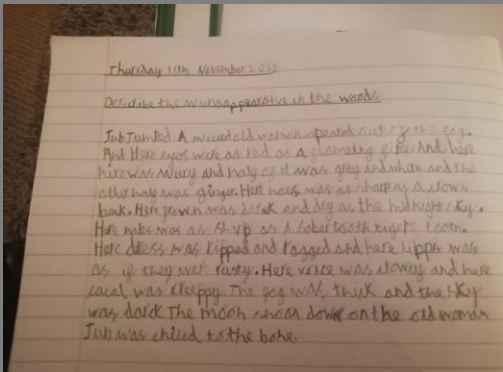 Thursday 11th November 2021
Describe the in the woods.
Jub Jumped A old woman apeared out of the fog.
And Here eyes were as red as a fire. And here
hire was and half of it was gray and white and the
other half was ginger. Here noes was as sharp as a crows
beak. Here was and as the midnight sky.
Here was as sharp as a saber tooth tooth.
Here dress was ripped and ragged and here was
as if they wer rusty. Here voice was and here
was creeppy. The fog was thick and the sky
was dark The moon shoon down on the old woman
Jub was chiled to the bone.